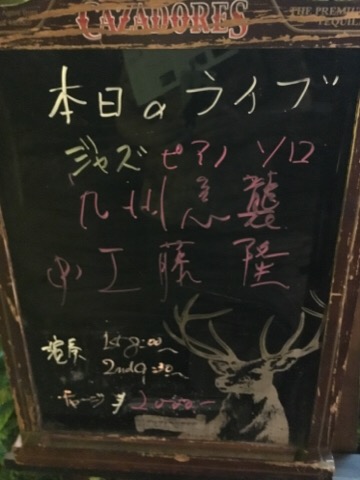 CAZADORES
THE PREMIUM
TEQUIL
本日のライブ
ジャズ ピアノ ソロ
九州急襲
工藤 隆
演奏 1st 8:00〜
2nd 9:30〜
チャージ ¥2000-